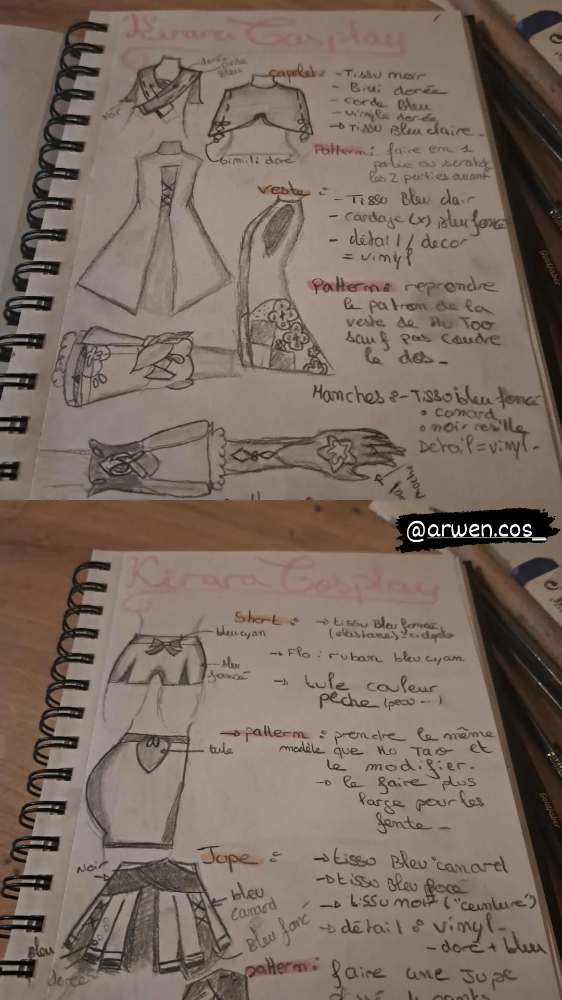 Kirara Cosplay
dorée
bleu
noir
capelet :
- Tissu noir
- Biai dorée
- corde Bleu
- vinile dorée
→ Tissu Bleu claire -
simili doré
Pattern : faire em 1
partie ou scratch
les 2 parties avant
veste :
- Tissu Bleu clair
- cordage (x) Bleu foncé
- détail / decor
= vinyl
Pattern : reprendre
le patron de la
veste de Hu Tao
sauf pas coudre
le dos -
Manches : - Tissu bleu foncé
• canard
• noir resille
Detail = vinyl -
@arwen.cos_
Kirara Cosplay
Short :
bleu cyan
bleu foncé
→ tissu Bleu foncé
(elastane)
→ Flo : ruban bleu cyan
→ tule couleur
pêche (peau -)
tule
→ pattern : prendre le même
modèle que Hu Tao et
le modifier.
→ le faire plus
large pour les
fente -
Jupe :
Noir
bleu
canard
Bleu foncé
Bleu
dorée
→ tissu Bleu canard
→ tissu Bleu foncé
→ tissu noir ("ceinture")
→ détail : vinyl -
- doré + bleu
pattern : faire une Jupe